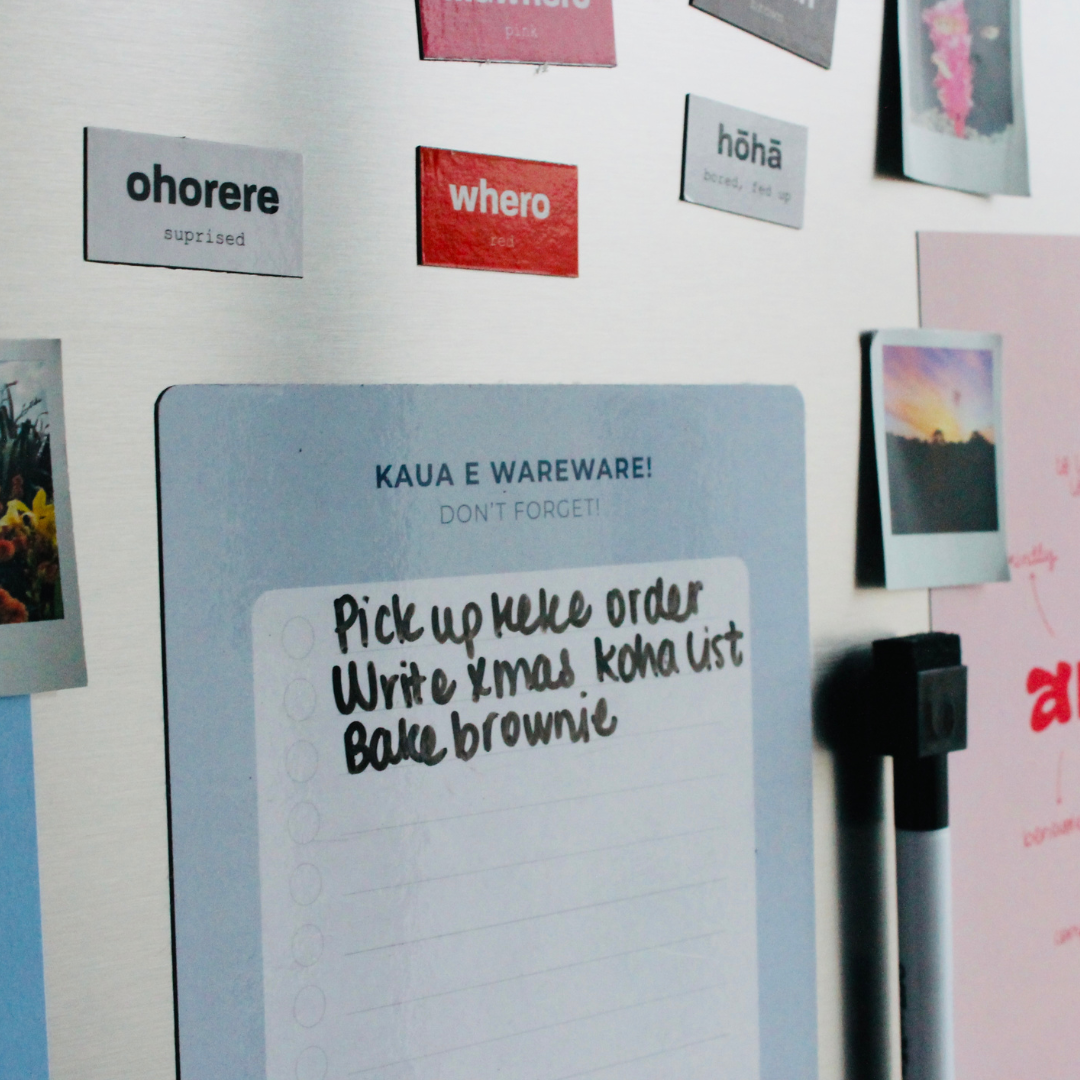 pink
brown
ohorere
suprised
whero
red
hōhā
bored, fed up
KAUA E WAREWARE!
DON'T FORGET!
Pick up keke order
Write xmas koha list
Bake brownie